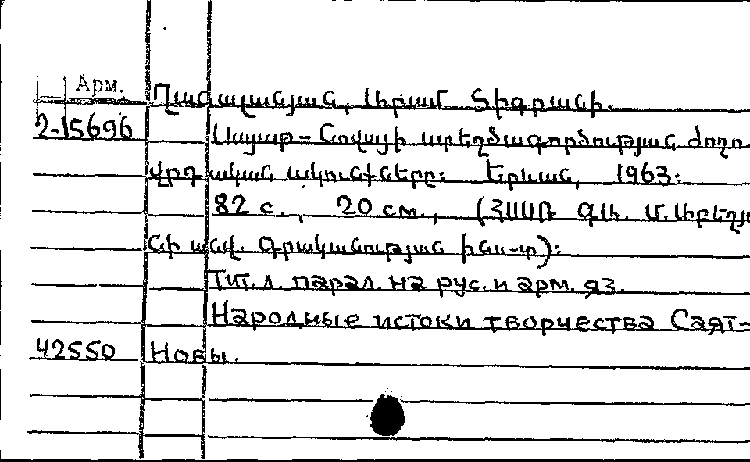 Арм.
Ղանալանյան, Արամ Տիգրանի.
2-15696 Սայաթ-Նովայի ստեղծագործության ժողո
վրդական ակունքները: Երևան, 1963:
82 с., 20 см., (ՀՍՍՌ ԳԱ. Մ. Աբեղյա
նի անվ. Գրականության ինս-տ):
Тит. л. парал. на рус. и арм. яз.
Народные истоки творчества Саят-
42550 Новы.